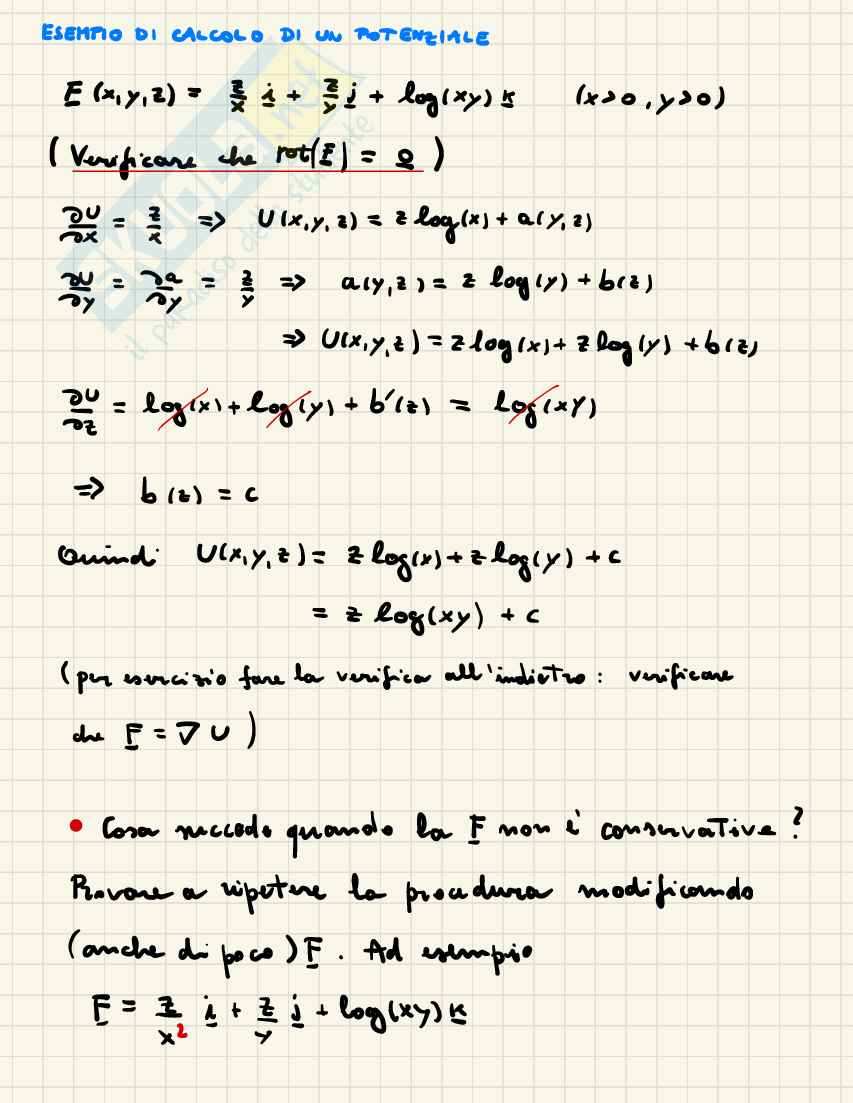 ESEMPIO DI CALCOLO DI UN POTENZIALE
F(x,y,z) = z/x i + z/y j + log(xy) k (x>0, y>0)
(Verificare che rot(F) = 0)
∂U/∂x = z/x ⇒ U(x,y,z) = z log(x) + a(y,z)
∂U/∂y = ∂a/∂y = z/y ⇒ a(y,z) = z log(y) + b(z)
⇒ U(x,y,z) = z log(x) + z log(y) + b(z)
∂U/∂z = log(x) + log(y) + b'(z) = log(xy)
⇒ b(z) = c
Quindi U(x,y,z) = z log(x) + z log(y) + c
= z log(xy) + c
(per esercizio fare la verifica all'indietro: verificare
che F = ∇U)
• Cosa succede quando la F non è conservative?
Provare a ripetere la procedura modificando
(anche di poco) F. Ad esempio
F = z/x² i + z/y j + log(xy) k
SKUOLA.net
il paradiso dello studente